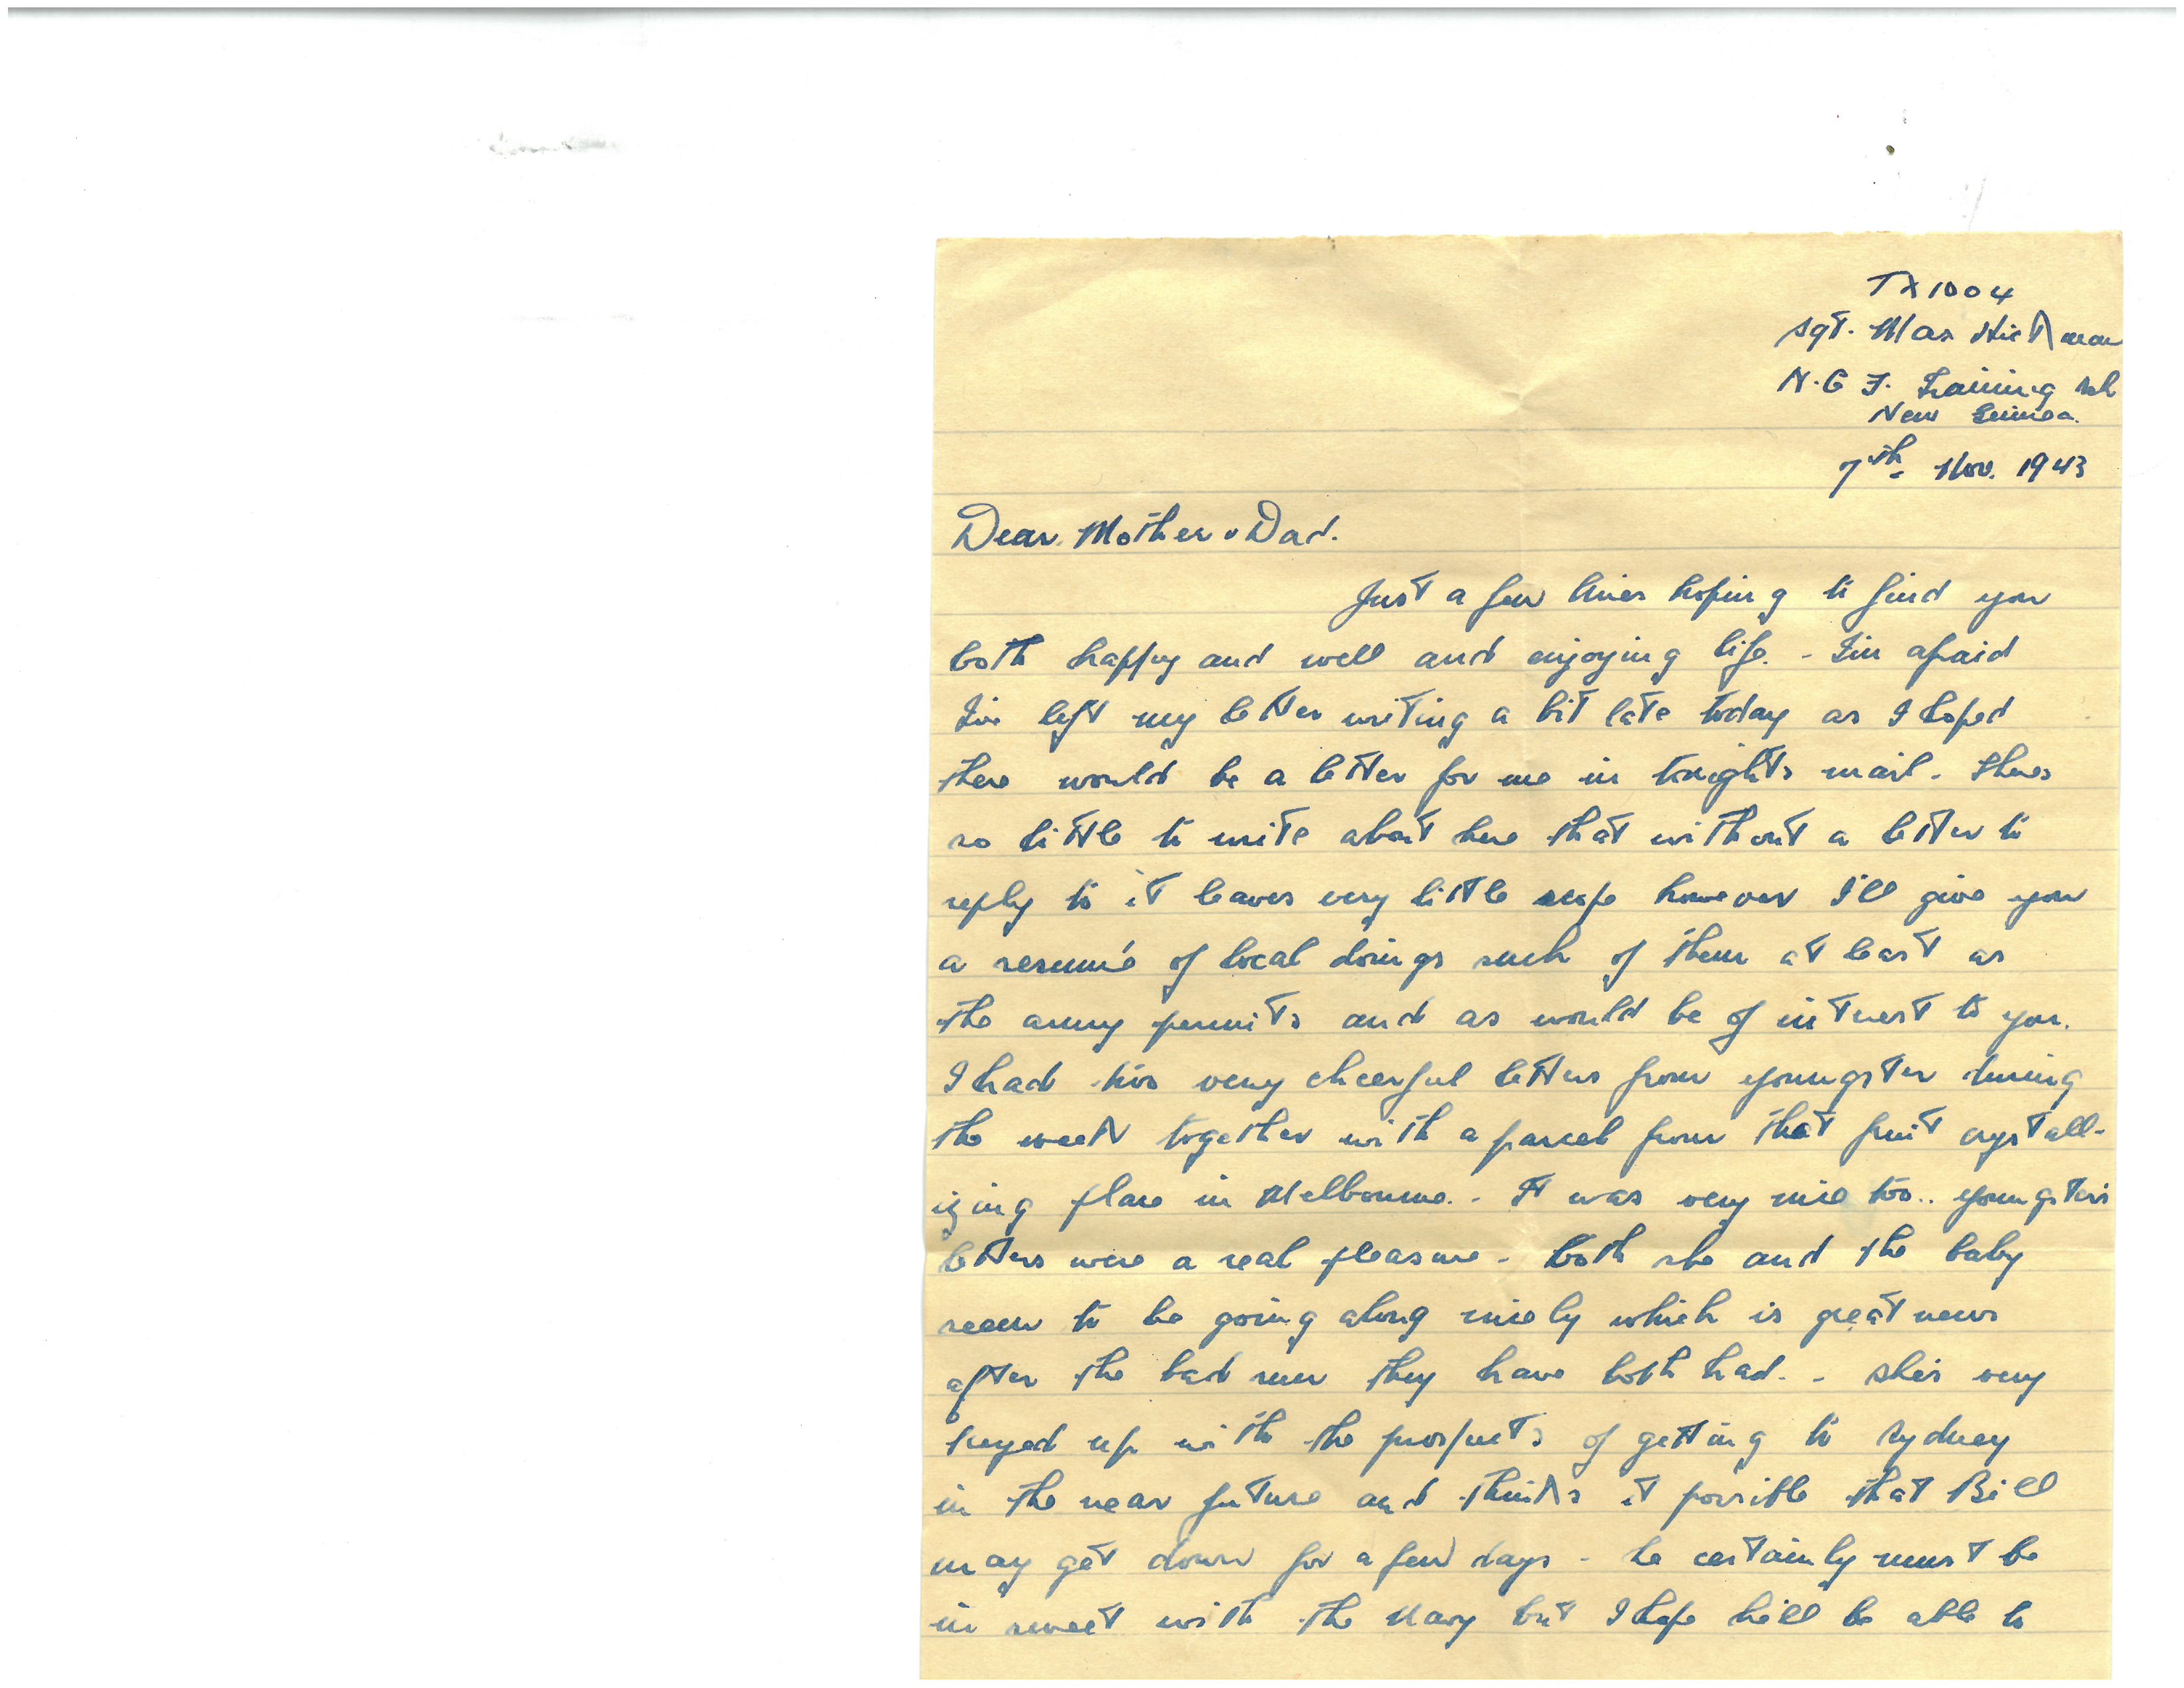 TX1004
Sgt. Max Hickman
N.G.F. Training Sch
New Guinea.
7th Nov. 1943
Dear Mother & Dad.
Just a few lines hoping to find you
both happy and well and enjoying life. - I'm afraid
I've left my letter writing a bit late today as I hoped
there would be a letter for me in tonights mail. Theres
so little to write about here that without a letter to
reply to it leaves very little scope however I'll give you
a resumé of local doings such of them at least as
the army permits and as would be of interest to you.
I had two very cheerful letters from youngster during
the week together with a parcel from that fruit crystall-
izing place in Melbourne. - It was very nice too.. youngster's
letters were a real pleasure - both she and the baby
seem to be going along nicely which is great news
after the bad run they have both had. - She's very
keyed up with the prospects of getting to Sydney
in the near future and thinks it possible that Bill
may get down for a few days - he certainly must be
in sweet with the Navy but I hope he'll be able to